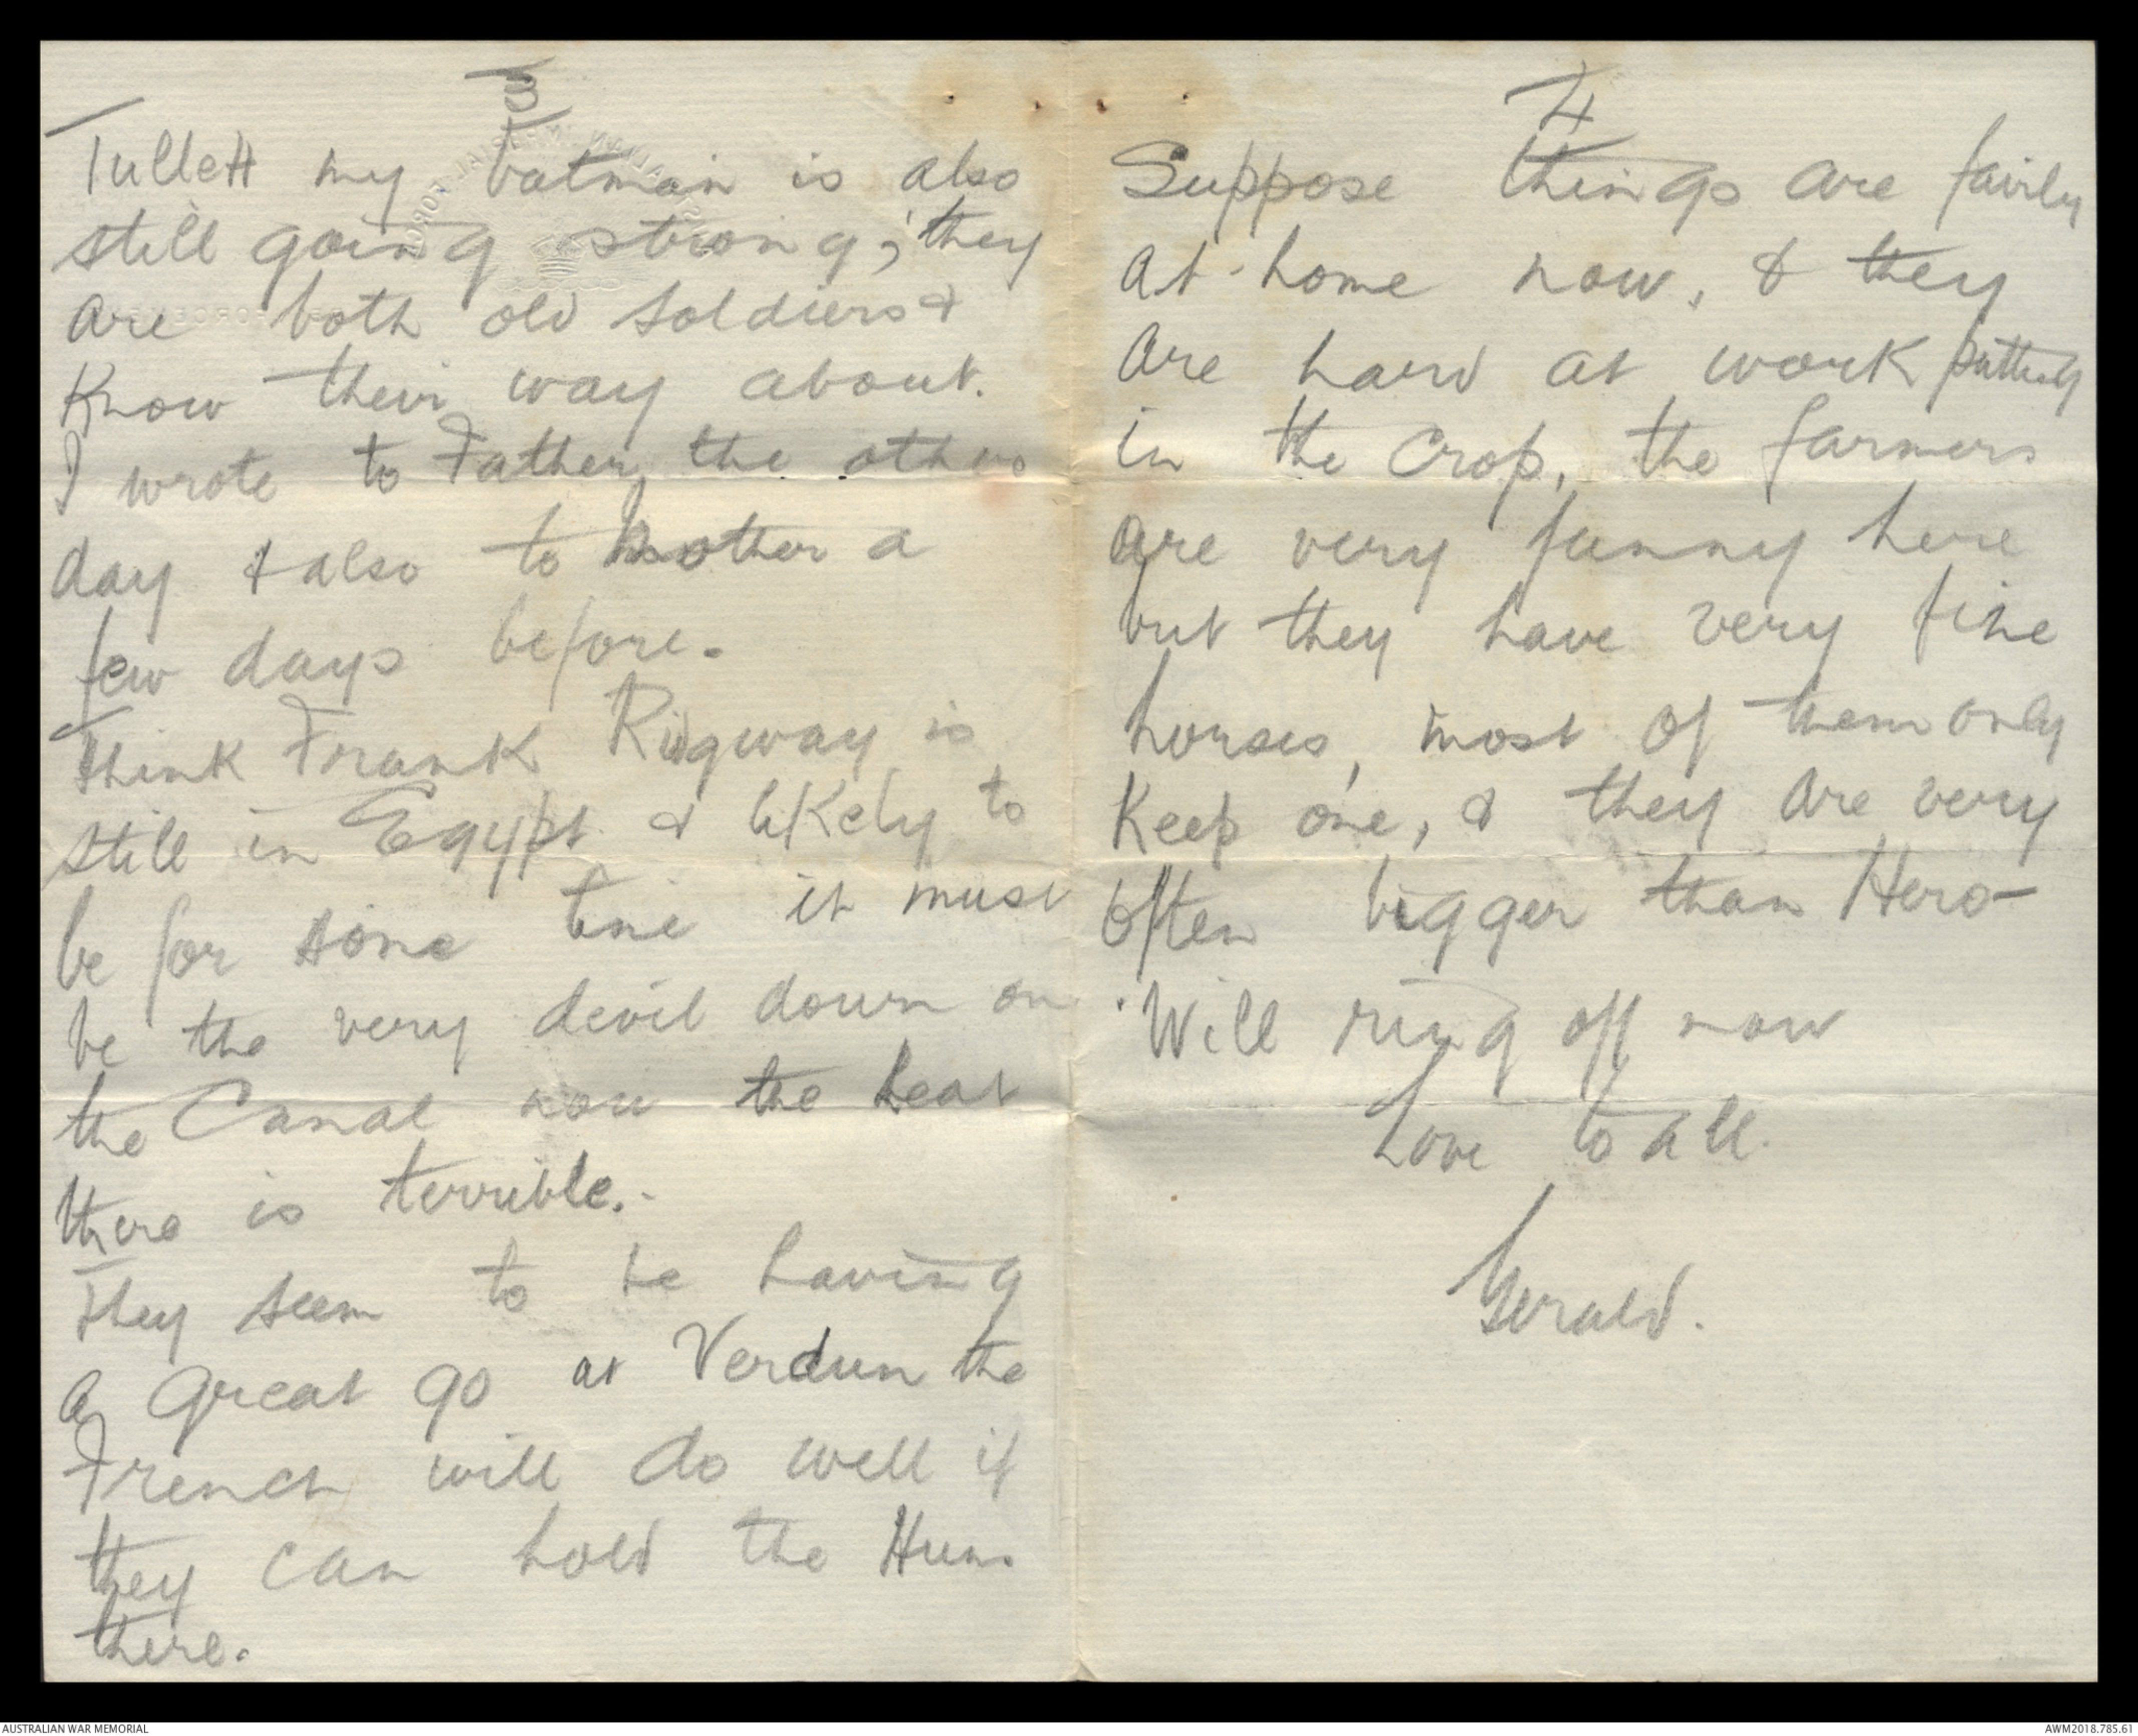 3
Tullett my batman is also
still going strong, they
are both old soldiers &
know their way about.
I wrote to Father the other
day & also to Mother a
few days before.
Think Frank Ridgway is
still in Egypt & likely to
be for some time it must
be the very devil down on
the Canal now the heat
there is terrible.
They seem to be having
a great go at Verdun the
French will do well if
they can hold the Hun
there.
4
Suppose things are fairly
at home now, & they
are hard at work putting
in the crop, the farmers
are very funny here
but they have very fine
horses, most of them only
keep one, & they are very
often bigger than Hero-
Will ring off now
Love to all.
Gerald.
AUSTRALIAN WAR MEMORIAL
AWM2018.785.61